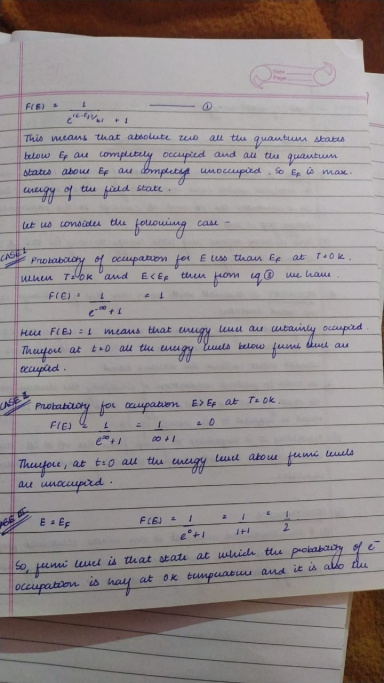 Date
Page
F(E) = 1 / e^(E-Ef)/kT + 1 ——— ①
This means that absolute zero all the quantum states
below EF are completely occupied and all the quantum
states above EF are completely unoccupied. So EF is max.
energy of the field state.
Let us consider the following case -
CASE I Probability of occupation for E less than EF at T=0K.
When T=0K and E<EF then from eq ③ we have
F(E) = 1 / e^-∞ + 1 = 1
Here F(E) = 1 means that energy level are certainly occupied.
Therefore at t=0 all the energy levels below fermi level are
occupied.
CASE II Probability for occupation E>EF at T=0K.
F(E) = 1 / e^∞ + 1 = 1 / ∞+1 = 0
Therefore, at t=0 all the energy level above fermi levels
are unoccupied.
CASE III E = EF F(E) = 1 / e^0 + 1 = 1 / 1+1 = 1 / 2
So, fermi level is that state at which the probability of e^-
occupation is half at 0K temperature and it is also the